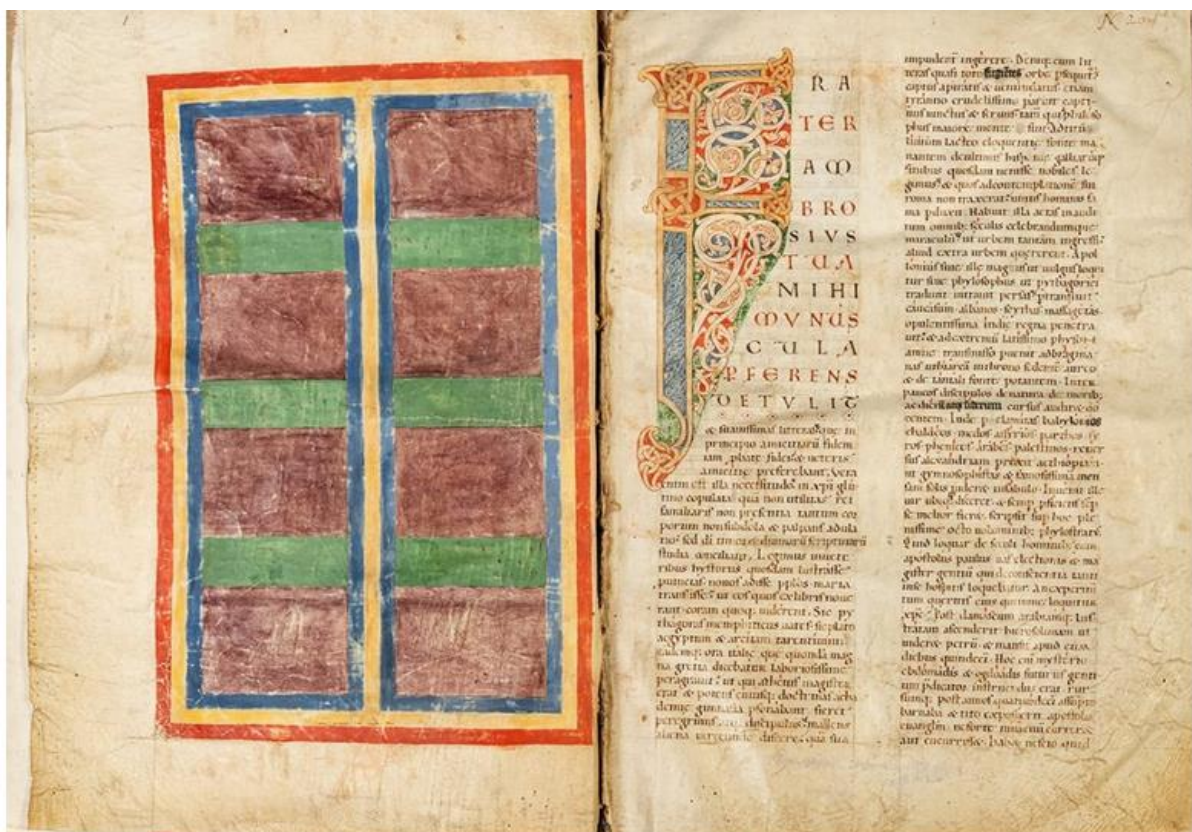 N 20
F RA
TER
AM
BRO
SIVS
TUA
MIHI
MVNUS
CULA
PFERENS
DETVLIT
& suauissimas litteras in
principio amicitiarū fidem
fidei & ueteris
amicitie preferebant. Vera
enim est illa necessitudo & xp̄i glu
tino copulata quā non utilitas rei
familiaris non presentia tantum cor
porum non subdola & palpans adula
tio sed dī timor & diuinarū scripturarū
studia conciliant. Legimus in uete
ribus hystoriis quosdam lustrasse
puincias nouos adisse pplos maria
transisse ut eos quos ex libris noue
rant coram quoq; uiderent. Sic py
thagoras memphiticos uates sic plato
aegyptum & arcitam tarentinum
eandemq; ora italie que quondā mag
na gretia dicebatur laboriosissime
peragrauit ut qui athenis magister
erat & potens cuiusq; doctrinas acha
demie gimnasia psonabant fieret
peregrinus atq; discipulus malens
aliena uerecunde discere quā sua
impudent ingerere. Deniq; cum lit
teras quasi toto fugientes orbe psequit
captus a piratis & uenundatus etiam
tyranno crudelissimo paruit capti
uus uinctus & seruus tam quia philoso
phus maiore emente se fuit. Ad titū
liuium lacteo eloquentie fonte ma
nantem de ultimis galliarūq;
finibus quosdam uenisse nobiles le
gimus & quos ad contemplationē sui
roma non traxerat unius hominis fa
ma pduxit. Habuit illa aetas inaudi
tum omnib; seculis celebrandumque
miraculū ut urbem tantam ingressi
aliud extra urbem quererent. Apol
lonius siue ille magus ut uulgus loqui
tur siue phylosophus ut pythagorici
tradunt intrauit persas ptransiuit
caucasum albanos scythas massagetas
opulentissima indie regna penetra
uit & ad extremū latissimo physon
amne transmisso puenit ad bragma
nas ut hiarcā in throno sedente aureo
& de tantali fonte potantem. Inter
paucos discipulos de natura de morib;
ac cursu audiret do
centem. Inde p elamitas babylonios
chaldeos medos assyrios parthos sy
ros phenices arabes palestinos reuer
sus alexandriam prexit aethiopiam
ut gymnosophistas & famosissimā men
sam solis uideret in sabulo. Inuenit ille
uir ubiq; disceret & semp pficiens sep
se melior fieret. Scripsit sup hoc ple
nissime octo uoluminib; phylostratus
Quid loquar de secli hominib; cum
apostolus paulus uas electionis & ma
gister gentiū qui de conscientia tanti
in se hospitis loquebatur. An experimen
tum queritis eius qui in me loquitur
xp̄c. Post damascum arabiamq; lus
tratam ascenderit hierosolimam ut
uideret petrū & mansit apud eum
diebus quindeci. Hoc eni mysterio
ebdomadis & ogdoadis futurus genti
um pdicator instruendus erat. Rur
sumq; post annos quatuordeci assupto
barnaba & tito exposuerit apostolis
euangliu ne forte in uacuū curreret
aut cucurrisset. Habet nescio quid